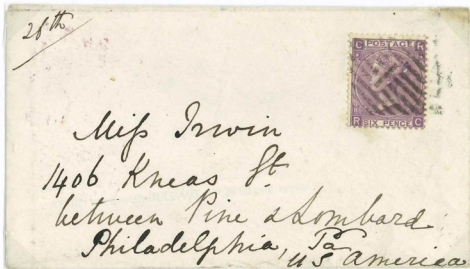 28th
C POSTAGE R
R SIX PENCE C
Miss Irwin
1406 Kneas St.
between Pine & Lombard
Philadelphia, Pa
US America